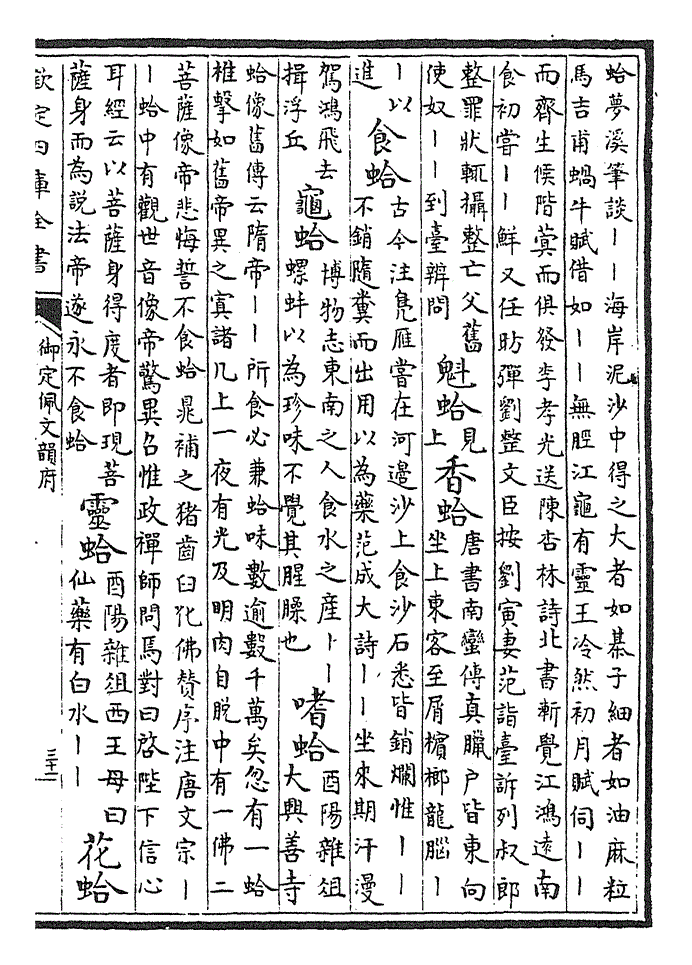 蛤夢溪筆談丨丨海岸泥沙中得之大者如棊子細者如油麻粒
馬吉甫蝸牛賦借如丨丨無脛江龜有靈王冷然初月賦伺丨丨
而齊生候階蓂而俱發李孝光送陳杏林詩北書斬覺江鴻遠南
食初嘗丨丨鮮又任昉彈劉整文臣按劉寅妻范詣臺訴列叔郎
整罪狀輒攝整亡父舊
使奴丨丨到臺辨問
魁蛤
見
上
香蛤
唐書南蠻傳真臘戶皆東向
坐上東客至屑檳榔龍腦丨
丨以
進
食蛤
古今注鳧雁嘗在河邊沙上食沙石悉皆銷爛惟丨丨
不銷隨糞而出用以為藥范成大詩丨丨坐來期汗漫
駕鴻飛去
揖浮丘
龜蛤
博物志東南之人食水之産丨丨
螺蚌以為珍味不覺其腥臊也
嗜蛤
酉陽雜俎
大興善寺
蛤像舊傳云隋帝丨丨所食必兼蛤味數逾數千萬矣忽有一蛤
椎擊如舊帝異之寘諸几上一夜有光及明肉自脫中有一佛二
菩薩像帝悲悔誓不食蛤晁補之猪齒臼化佛贊序注唐文宗丨
丨蛤中有觀世音像帝驚異召惟政禪師問焉對曰啓陛下信心
耳經云以菩薩身得度者即現菩
薩身而為說法帝遂永不食蛤
靈蛤
酉陽雜俎西王母曰
仙藥有白水丨丨
花蛤
欽定四庫全書
御定佩文韻府
三十二